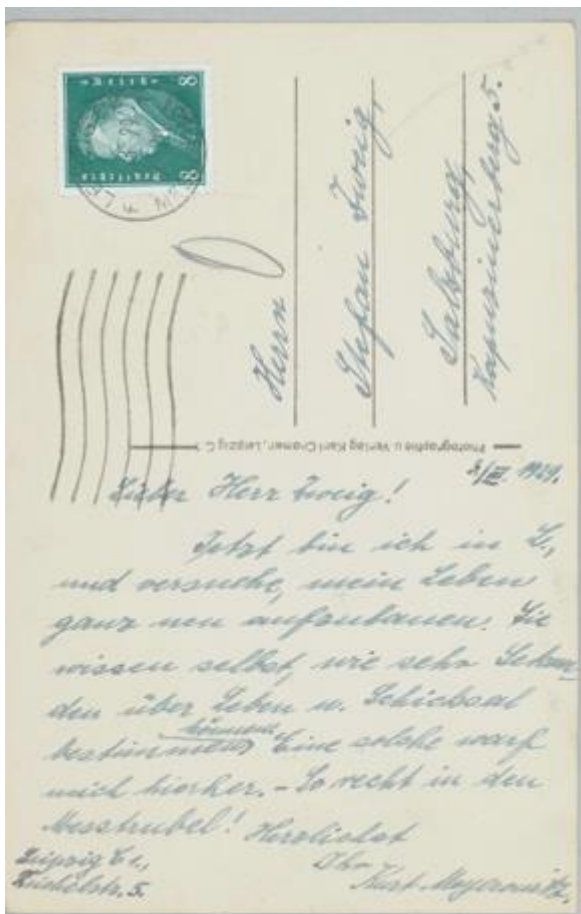 8
Deutsches
Reich
8
Herrn
Stefan Zweig,
Salzburg,
Kapuzinerberg 5.
Photographie u. Verlag Karl Cramer, Leipzig C. 1
3/III. 1929.
Lieber Herr Zweig!
Jetzt bin ich in L.,
und versuche, mein Leben
ganz neu aufzubauen. Sie
wissen selbst, wie sehr Sekun-
den über Leben u. Schicksal
bestimmen können. Eine solche warf
mich hierher. – So recht in den
Messtrubel! Herzlichst
Ihr
Kurt
Leipzig C1.,